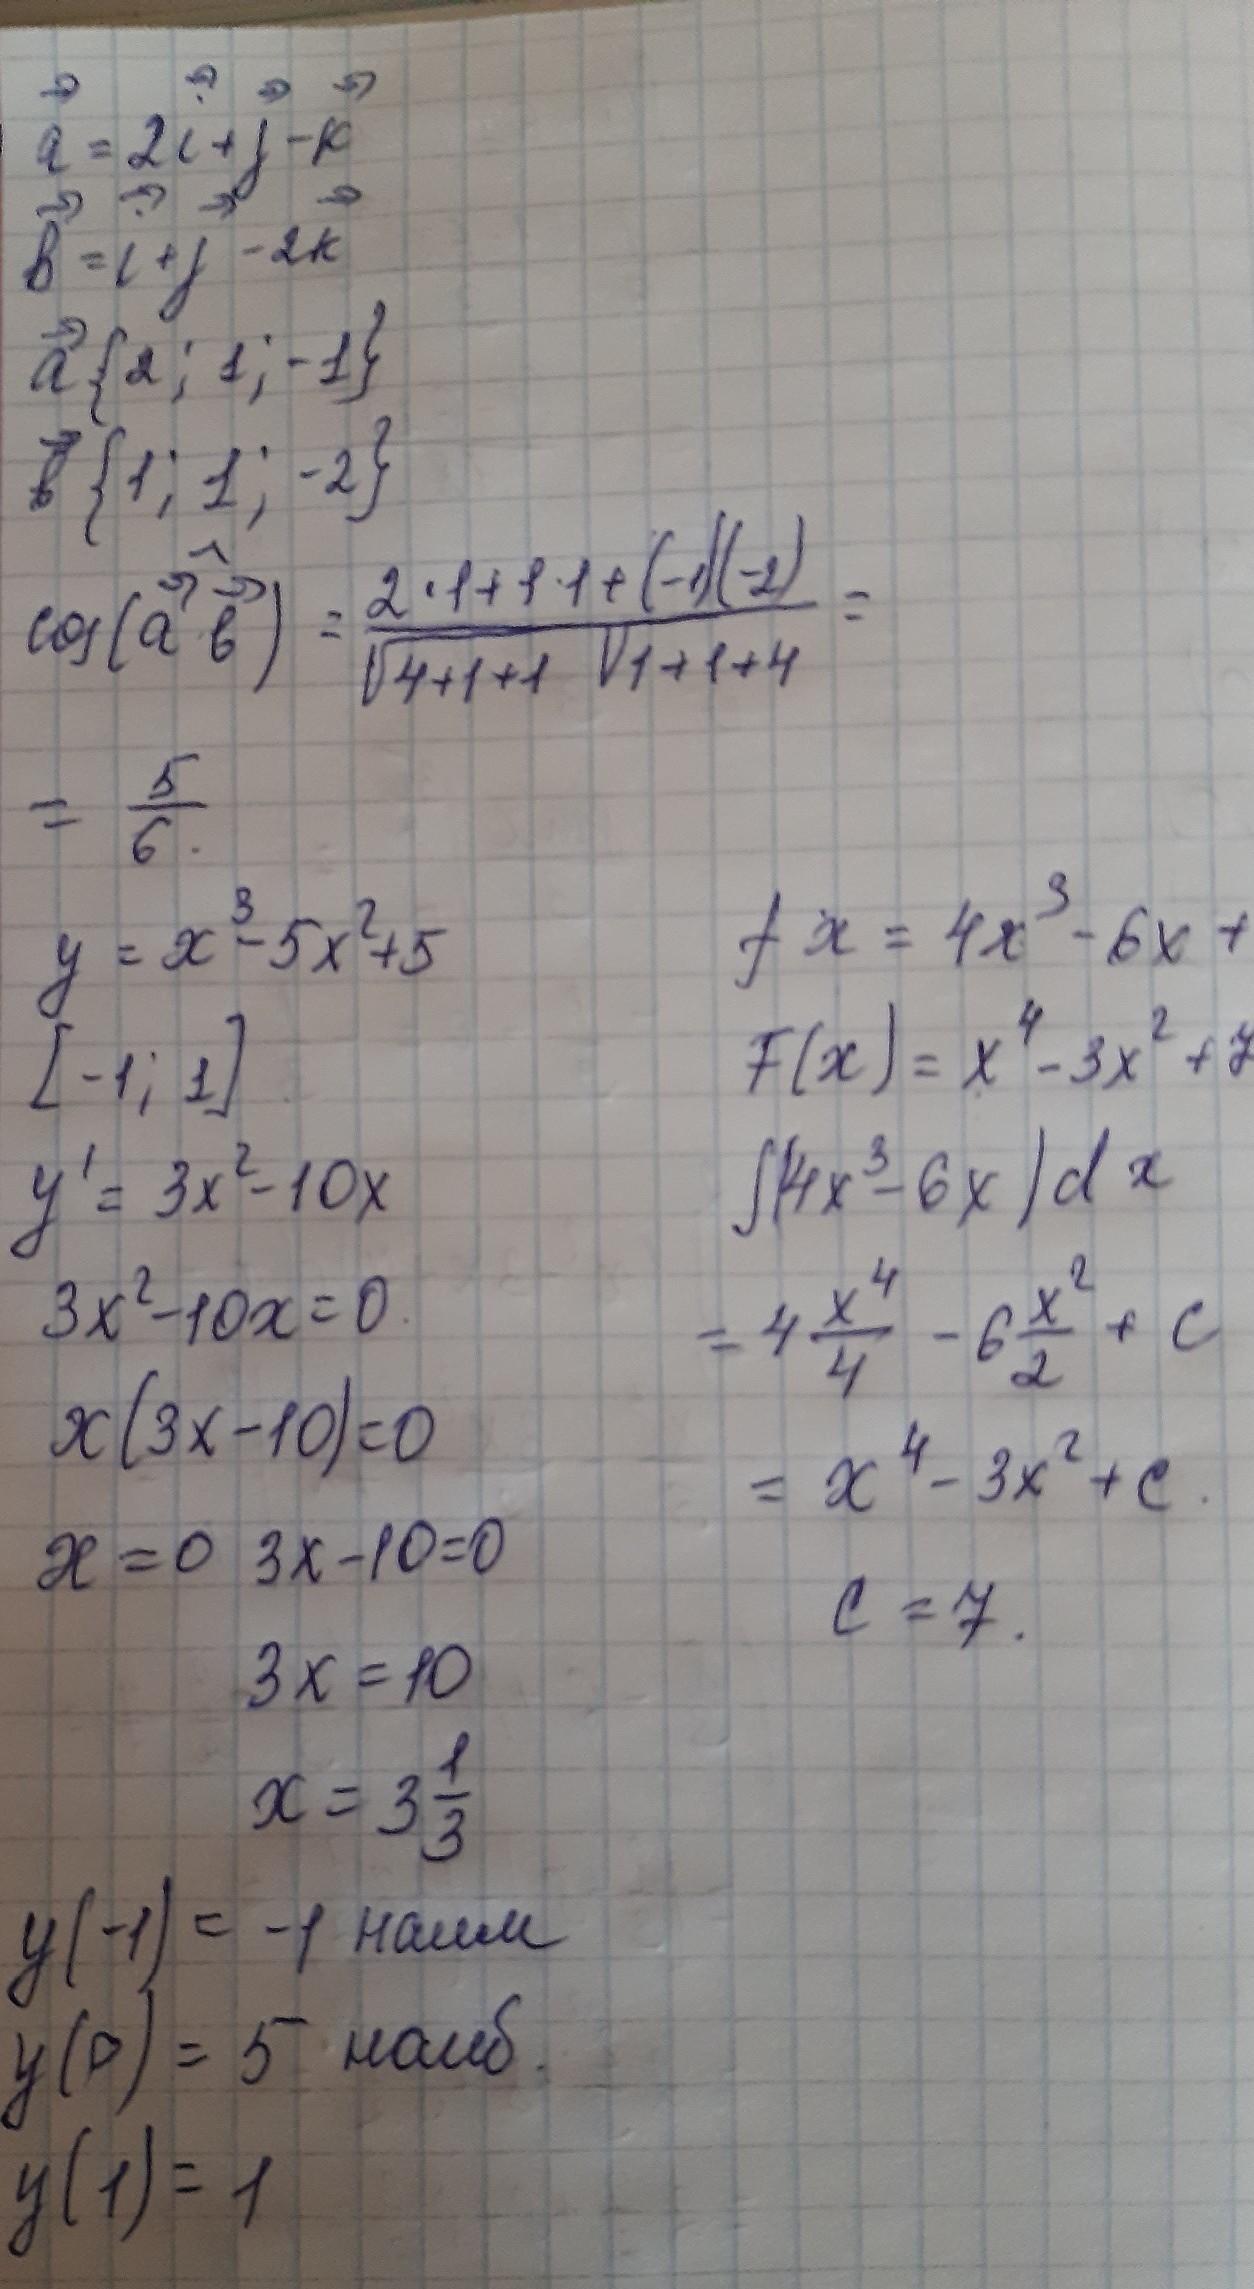 a⃗ = 2i⃗ + j⃗ - k⃗
b⃗ = i⃗ + j⃗ - 2k⃗
a⃗ {2; 1; -1}
b⃗ {1; 1; -2}
cos(a⃗ ^ b⃗) = (2·1+1·1+(-1)(-2))/(√4+1+1 √1+1+4) =
= 5/6.
y = x³-5x²+5
[-1; 1]
y' = 3x²-10x
3x²-10x=0.
x(3x-10)=0
x=0 3x-10=0
3x=10
x = 3 1/3
y(-1) = -1 наим
y(0) = 5 наиб.
y(1) = 1
f x = 4x³ - 6x +
F(x) = x⁴ - 3x² + 7
∫(4x³-6x)dx
= 4 x⁴/4 - 6 x²/2 + c
= x⁴ - 3x² + c.
c = 7.